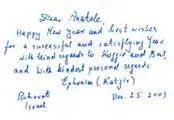 Dear Anatole,
Happy New Year and best wishes
for a successful and satisfying Year.
with kind regards to and
and with kindest personal regards
Ephraim (Katzir)
Rehovot
Israel
Dec. 25 2003